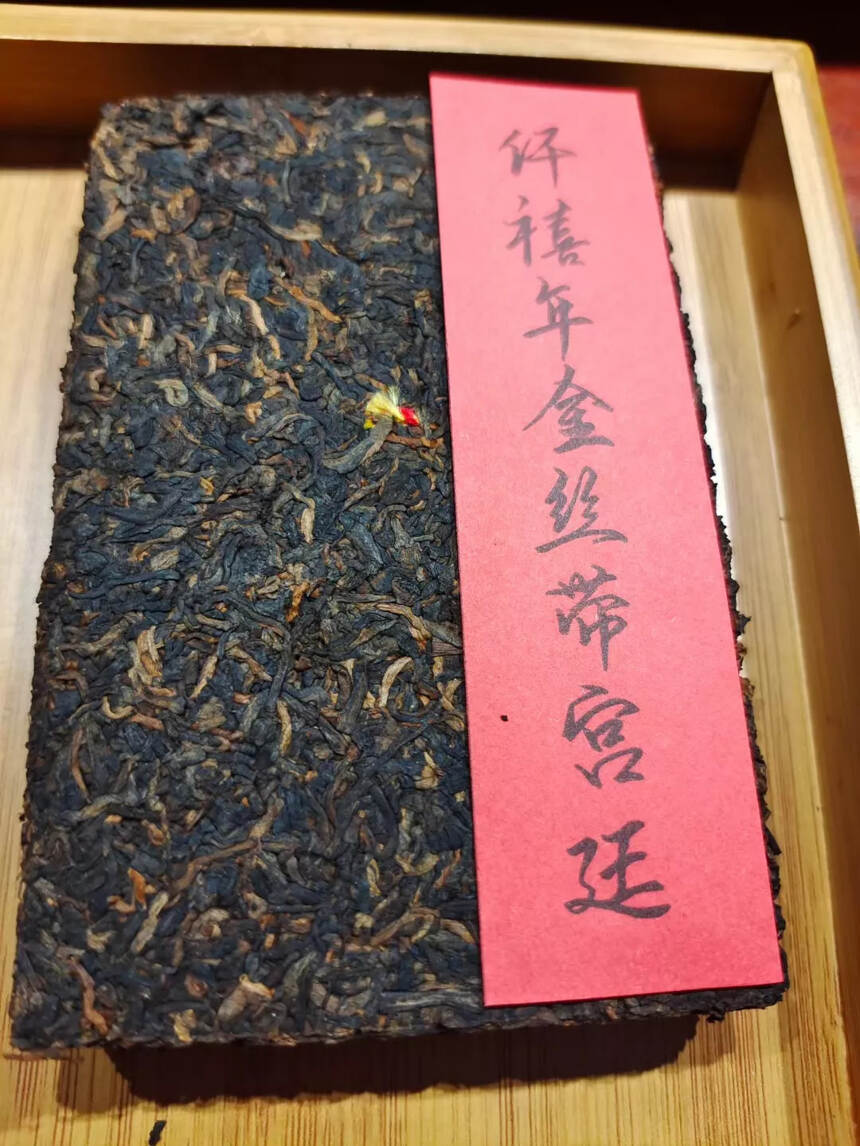 仟禧年金丝带宫廷